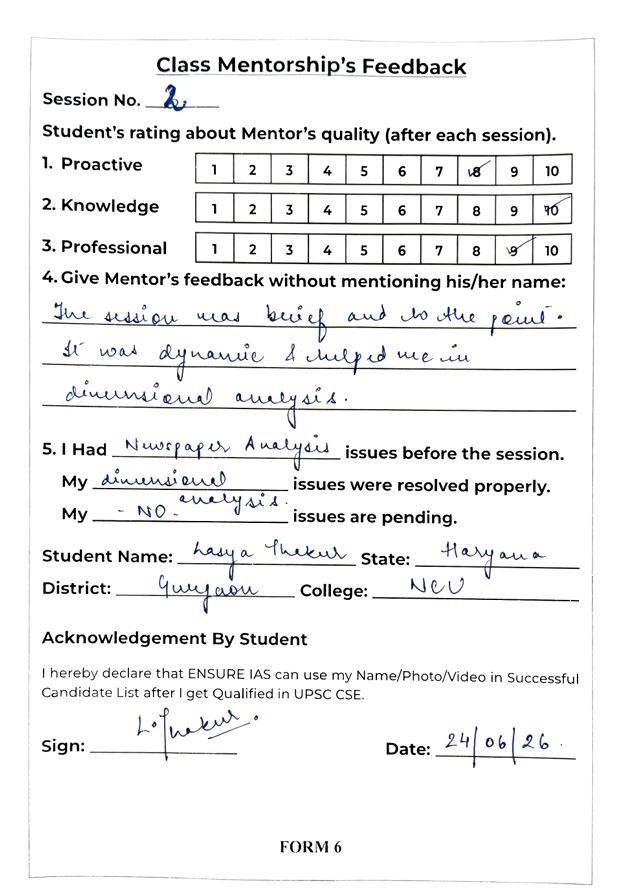 Class Mentorship's Feedback
Session No. 2
Student's rating about Mentor's quality (after each session).
1. Proactive 1 2 3 4 5 6 7 8 9 10
2. Knowledge 1 2 3 4 5 6 7 8 9 10
3. Professional 1 2 3 4 5 6 7 8 9 10
4. Give Mentor's feedback without mentioning his/her name:
The session was brief and to the point.
It was dynamic & helped me in
dimensional analysis.
5. I Had Newspaper Analysis issues before the session.
My dimensional issues were resolved properly.
analysis.
My - NO - issues are pending.
Student Name: Lasya Thakur State: Haryana
District: Gurgaon College: NCU
Acknowledgement By Student
I hereby declare that ENSURE IAS can use my Name/Photo/Video in Successful
Candidate List after I get Qualified in UPSC CSE.
Sign: L. Thakur. Date: 24/06/26.
FORM 6